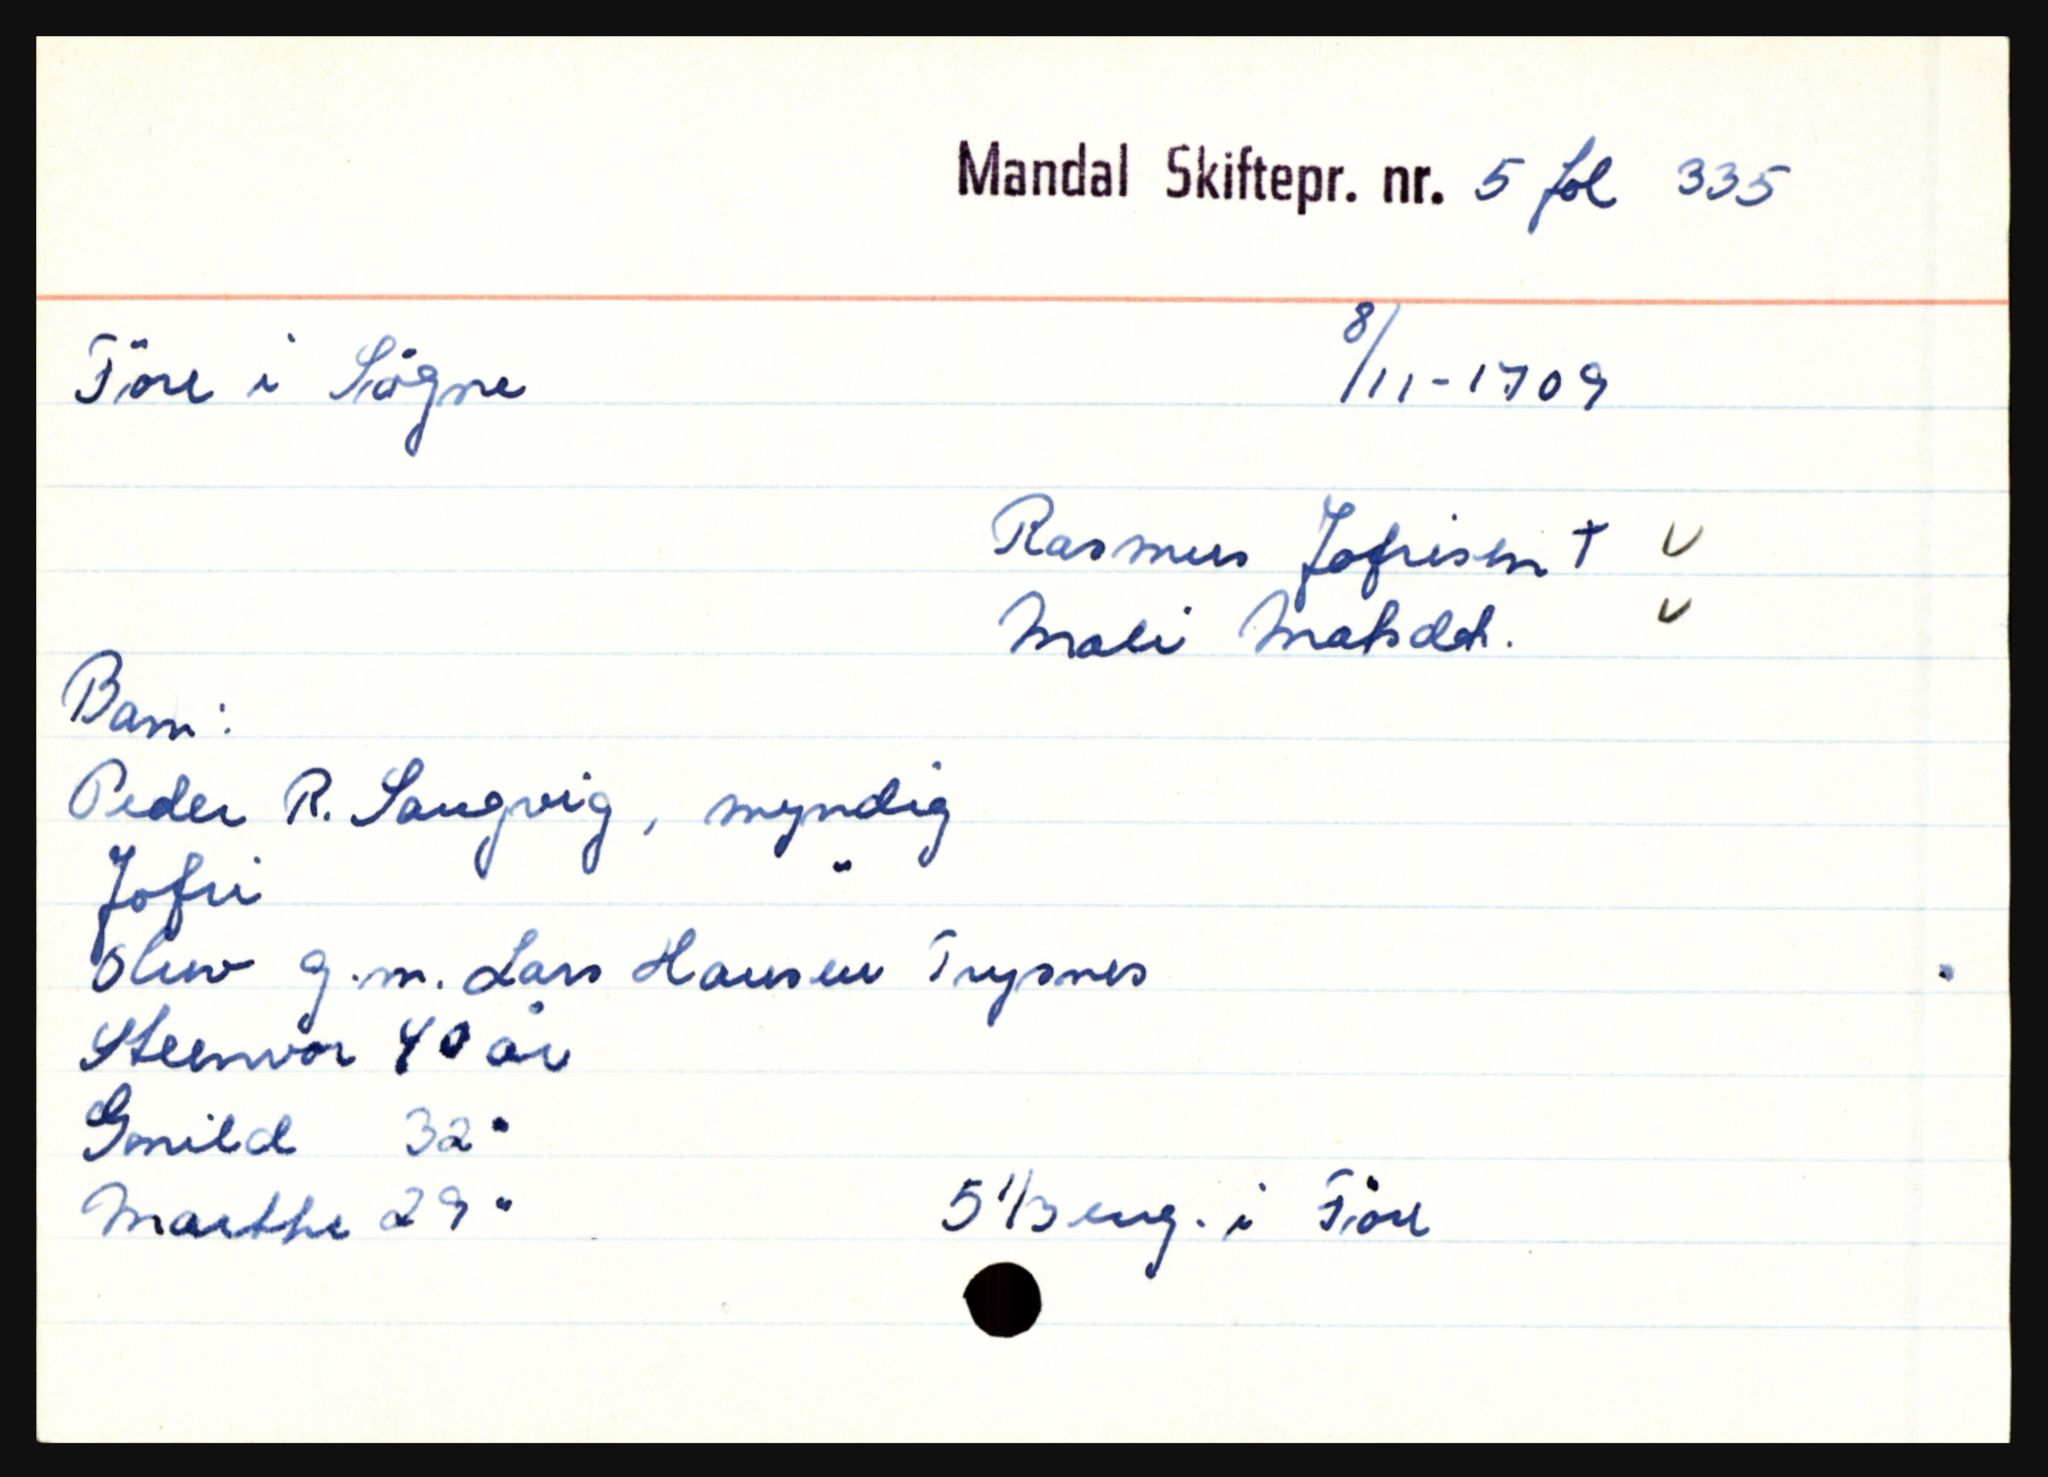 Mandal Skiftepr. nr. 5 fol 335
Före i Sögne 8/11-1709
Rasmus Jofrisen † V
Mali Matsdtr. V
Barn:
Peder R. Sangvig, myndig
Jofri "
Oluv g.m. Lars Hansen Trysnes
Steenvor 40 år
Gunild 32 "
Marthe 29 " 5 1/3 eng. i Före